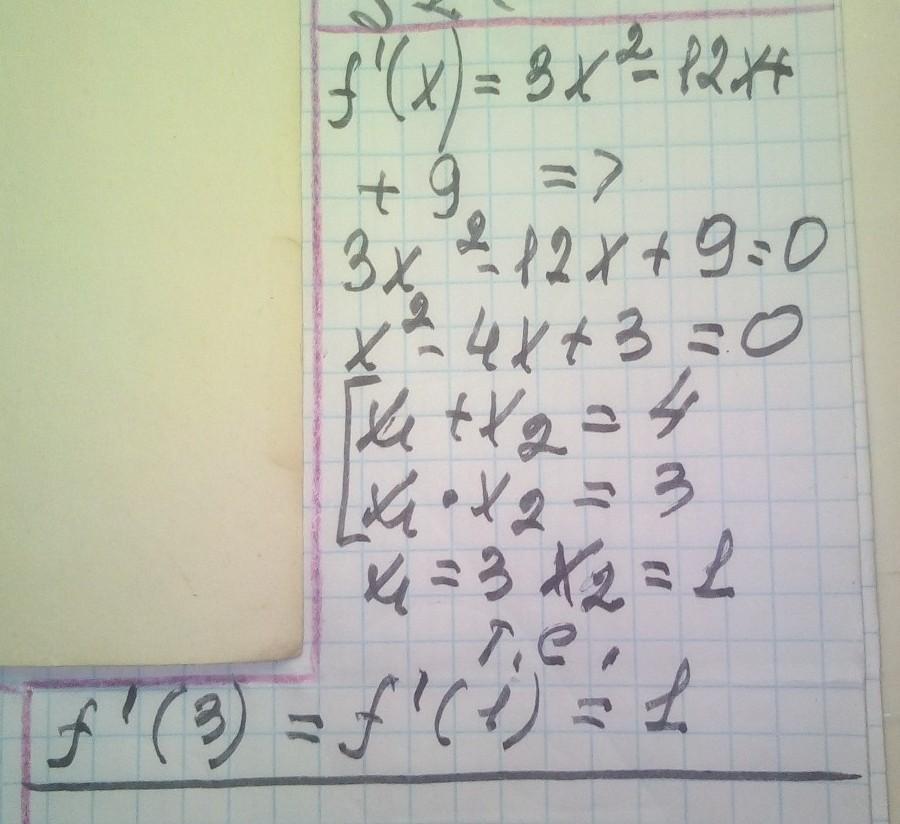 f'(x) = 3x² - 12x +
+ 9 =>
3x² - 12x + 9 = 0
x² - 4x + 3 = 0
[x₁ + x₂ = 4
x₁ · x₂ = 3
x₁ = 3 x₂ = 1
т.е.
f'(3) = f'(1) = 1